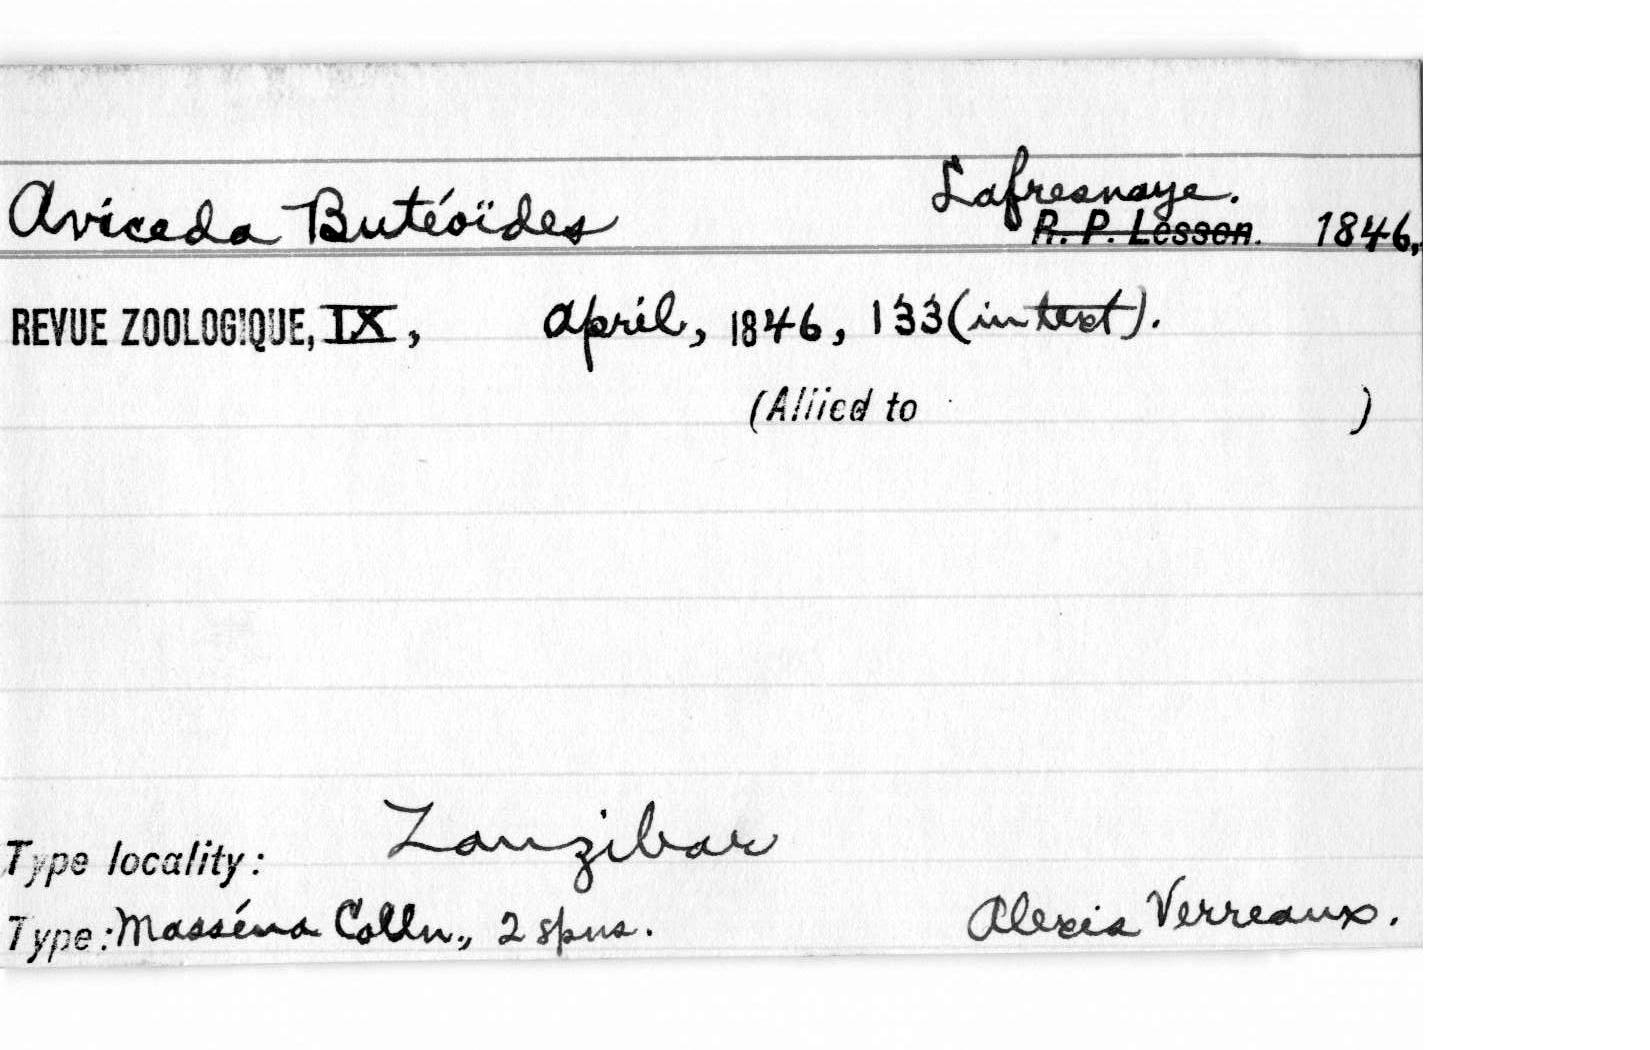 Aviceda Butéoïdes Lafresnaye.
R. P. Lesson. 1846,
REVUE ZOOLOGIQUE, IX, April, 1846, 133 (in text).
(Allied to )
Type locality: Zanzibar
Type: Masséna Colln., 2 spns. Alexis Verreaux.